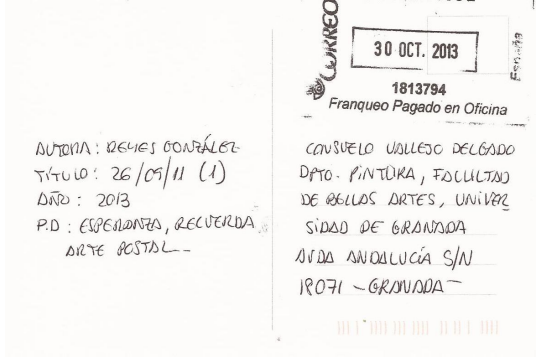 CORREO
30 OCT. 2013
España
1813794
Franqueo Pagado en Oficina
AUTORA: REYES GONZÁLEZ
TÍTULO: 26/09/11 (1)
AÑO: 2013
P.D: ESPERANZA, RECUERDA
ARTE POSTAL
CONSUELO VALLEJO DELGADO
DPTO. PINTURA, FACULTAD
DE BELLAS ARTES, UNIVER
SIDAD DE GRANADA
AVDA ANDALUCÍA S/N
18071 - GRANADA -